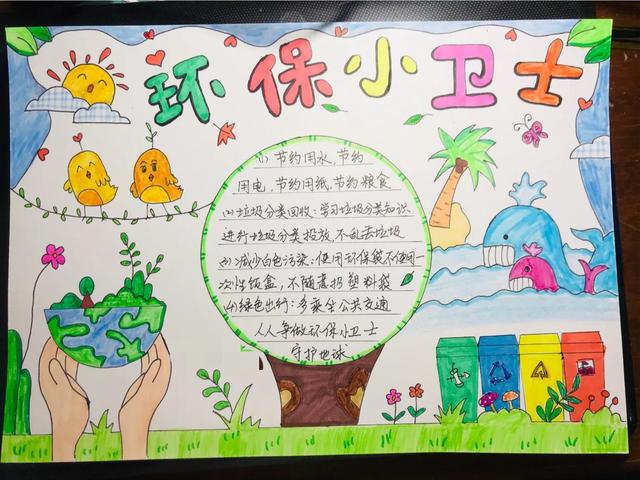 环保小卫士
(1)节约用水,节约
用电,节约用纸,节约粮食
(2)垃圾分类回收:学习垃圾分类知识
进行垃圾分类投放,不乱丢垃圾
(3)减少白色污染:使用环保袋不使用一
次性饭盒,不随意扔塑料袋
(4)绿色出行:多乘坐公共交通
人人争做环保小卫士
守护地球